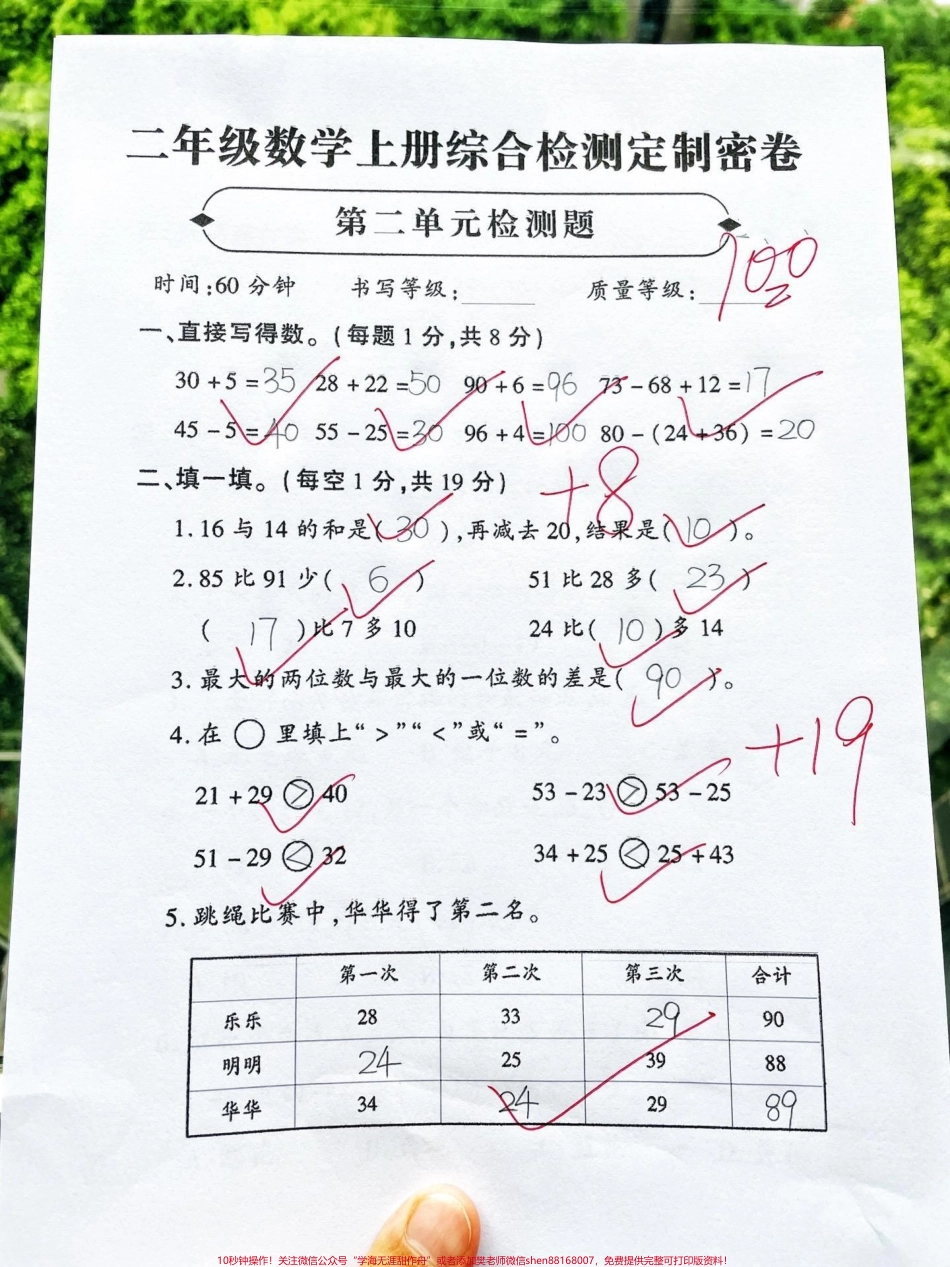 二年级数学上册综合检测定制密卷
第二单元检测题
时间:60分钟 书写等级: 质量等级:
100
一、直接写得数。(每题1分,共8分)
30+5=35 28+22=50 90+6=96 73-68+12=17
45-5=40 55-25=30 96+4=100 80-(24+36)=20
+8
二、填一填。(每空1分,共19分)
1.16与14的和是(30),再减去20,结果是(10)。
2.85比91少(6) 51比28多(23)
(17)比7多10 24比(10)多14
3.最大的两位数与最大的一位数的差是(90)。
4.在○里填上“>”“<”或“=”。
+19
21+29>40 53-23>53-25
51-29<32 34+25<25+43
5.跳绳比赛中,华华得了第二名。
第一次 第二次 第三次 合计
乐乐 28 33 29 90
明明 24 25 39 88
华华 34 24 29 89
10秒钟操作！关注微信公众号“学海无涯甜作舟”或者添加樊老师微信shen88168007，免费提供完整可打印版资料！